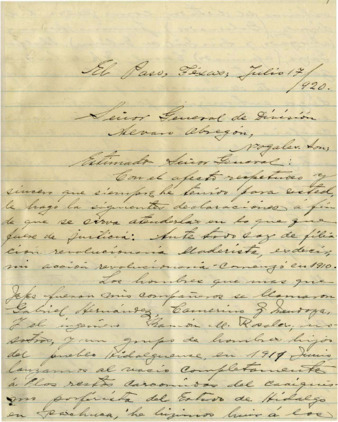 El Paso, Texas, Julio 17/
/920.
Señor General de División
Alvaro Obregón,
Nogales, Son.
Estimado Señor General:
Con el afecto respetuoso y
sincero que siempre he tenido para usted,
le hago la siguiente declaración, a fin
de que se sirva atenderla en lo que que
fuere de justicia. Ante todo soy de filia
ción revolucionaria Maderista, es decir,
mi acción revolucionaria comenzó en 1910.
Los hombres que mas que
Jefes fueron mis compañeros se llamaron
Gabriel Hernández, Camerino Z. Mendoza,
y el ingeniero Ramón M. Rosales, no
sotros, y un grupo de hombres hijos
del pueblo Hidalguense, en 1911
lanzamos al vacío completamente
á los restos del
porfirista del Estado de Hidalgo
en Pachuca, he hicimos huir á los